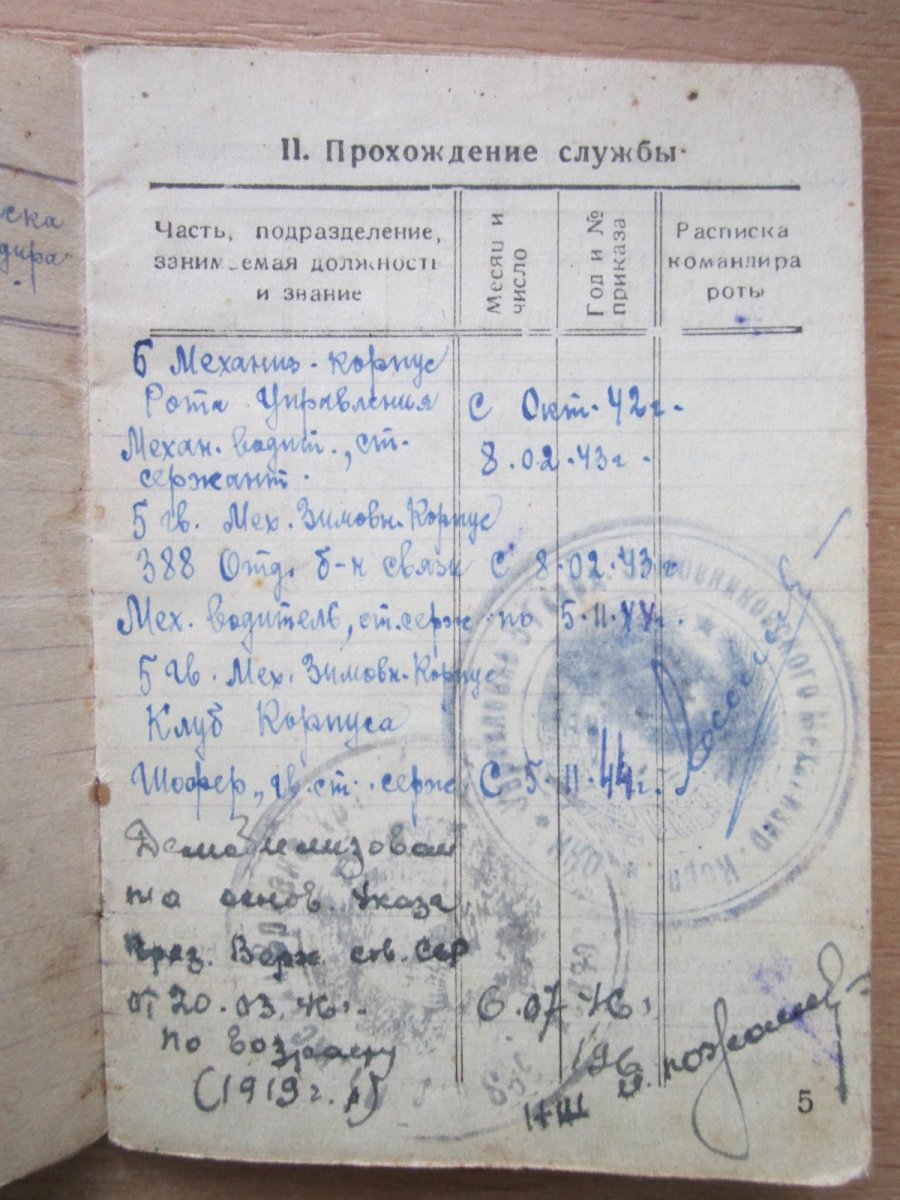 ска
дира
II. Прохождение службы
Часть, подразделение, занимаемая должность и звание
Месяц и число
Год и № приказа
Расписка командира роты
6 Механиз. корпус
Рота Управления с Окт. 42 г.
Механ. водит., ст. 8.02.43 г.
сержант.
5 гв. Мех. Зимовн. Корпус
388 Отд. б-н связи с 8.02.43 г.
Мех. водитель, ст. серж. по 5.11.44 г.
5 Гв. Мех. Зимовн. Корпус
Клуб Корпуса
Шофер, гв. ст. серж. С 5.11.44 г.
Демобилизован
на основ. Указа
През. Верх. сов. Сср
от 20.03.46 г. 6.07.46 г.
по возрасту 196
(1919 г. р)
НШ
5